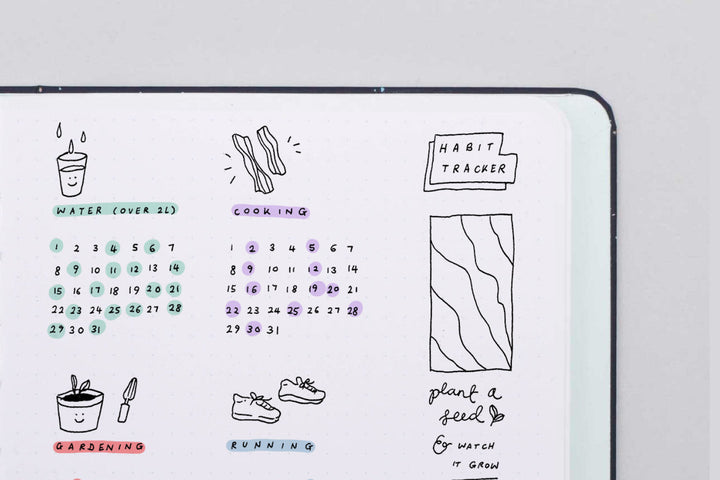 WATER (OVER 2L)
1 2 3 4 5 6 7
8 9 10 11 12 13 14
15 16 17 18 19 20 21
22 23 24 25 26 27 28
29 30 31
COOKING
1 2 3 4 5 6 7
8 9 10 11 12 13 14
15 16 17 18 19 20 21
22 23 24 25 26 27 28
29 30 31
HABIT
TRACKER
plant a
seed
& WATCH
IT GROW
GARDENING
RUNNING